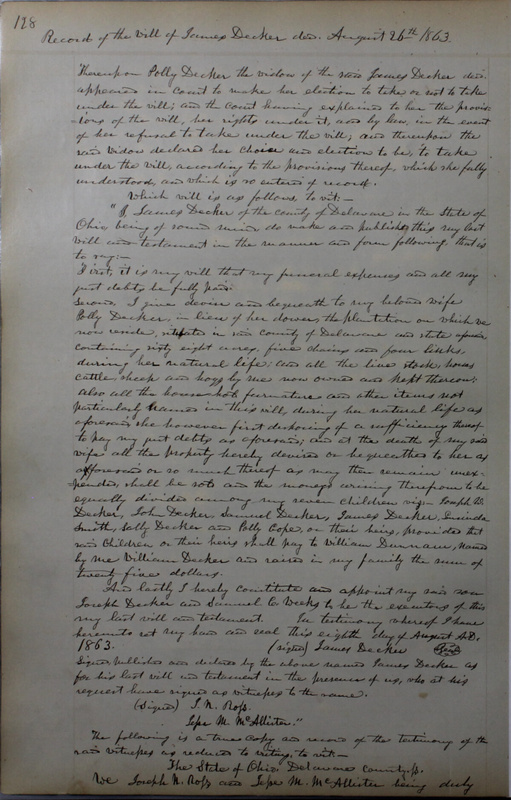 128
Record of the Will of James Decker dec. August 26th 1863.
Thereupon Polly Decker the widow of the said James Decker dec.
appeared in Court to make her election to take or not to take
under the will; and the Court having explained to her the provis-
ions of the will, her rights under it, and by law, in the event
of her refusal to take under the will; and thereupon the
said Widow declared her Choice and election to be, to take
under the will, according to the provisions thereof, which she fully
understood, and which is so entered of record.
Which will is as follows, to wit:—
"I, James Decker of the county of Delaware in the State of
Ohio being of sound mind do make and publish this my last
will and testament in the manner and form following, that is
to say:—
First, it is my will that my funeral expenses and all my
just debts be fully paid.
Second, I give devise and bequeath to my beloved wife
Polly Decker, in lieu of her dower, the plantation on which we
now reside, situate in said county of Delaware and state aforesaid
containing sixty eight acres, five chains and four links,
during her natural life, and all the live stock, horses
cattle sheep and hogs by me now owned and kept thereon;
also all the household furniture and other items not
particularly named in this will, during her natural life as
aforesaid she however first disposing of a sufficiency thereof
to pay my just debts as aforesaid; and at the death of my said
wife all the property hereby devised or bequeathed to her as
aforesaid or so much thereof as may then remain unex-
pended, shall be sold and the moneys arising therefrom to be
equally divided among my seven children viz— Joseph W.
Decker, John Decker, Samuel Decker, James Decker, Lucinda
Smith, Sally Decker and Polly Cope, or their heirs, provided that
said Children or their heirs shall pay to William Dunnann, named
by me William Decker and raised in my family the sum of
twenty five dollars.
And lastly I hereby constitute and appoint my said son
Joseph Decker and Samuel C. Weeks to be the executors of this
my last will and testament. In testimony whereof I have
hereunto set my hand and seal this eighth day of August A.D.
1863. (signed) James Decker Seal
Signed published and declared by the above named James Decker as
for his last will and testament in the presence of us, who at his
request have signed as witnesses to the same.
(Signed) J. N. Ross.
Jesse M. McAllister."
The following is a true copy and record of the testimony of the
said witnesses as reduced to writing, to wit—
The State of Ohio, Delaware County ss.
We Joseph N. Ross and Jesse M. McAllister being duly